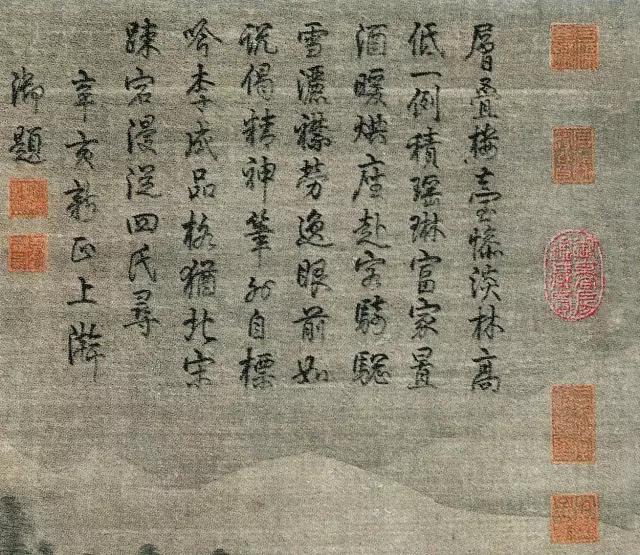 層疊樓臺慘淡林高
低一例積瑤琳富家置
酒暖烘座赴客騎驄
雪灑襟勞逸眼前如
説偈精神筆外自標
吟李成品格猶北宋
踈宕漫從四氏尋
辛亥新正上澣
御題